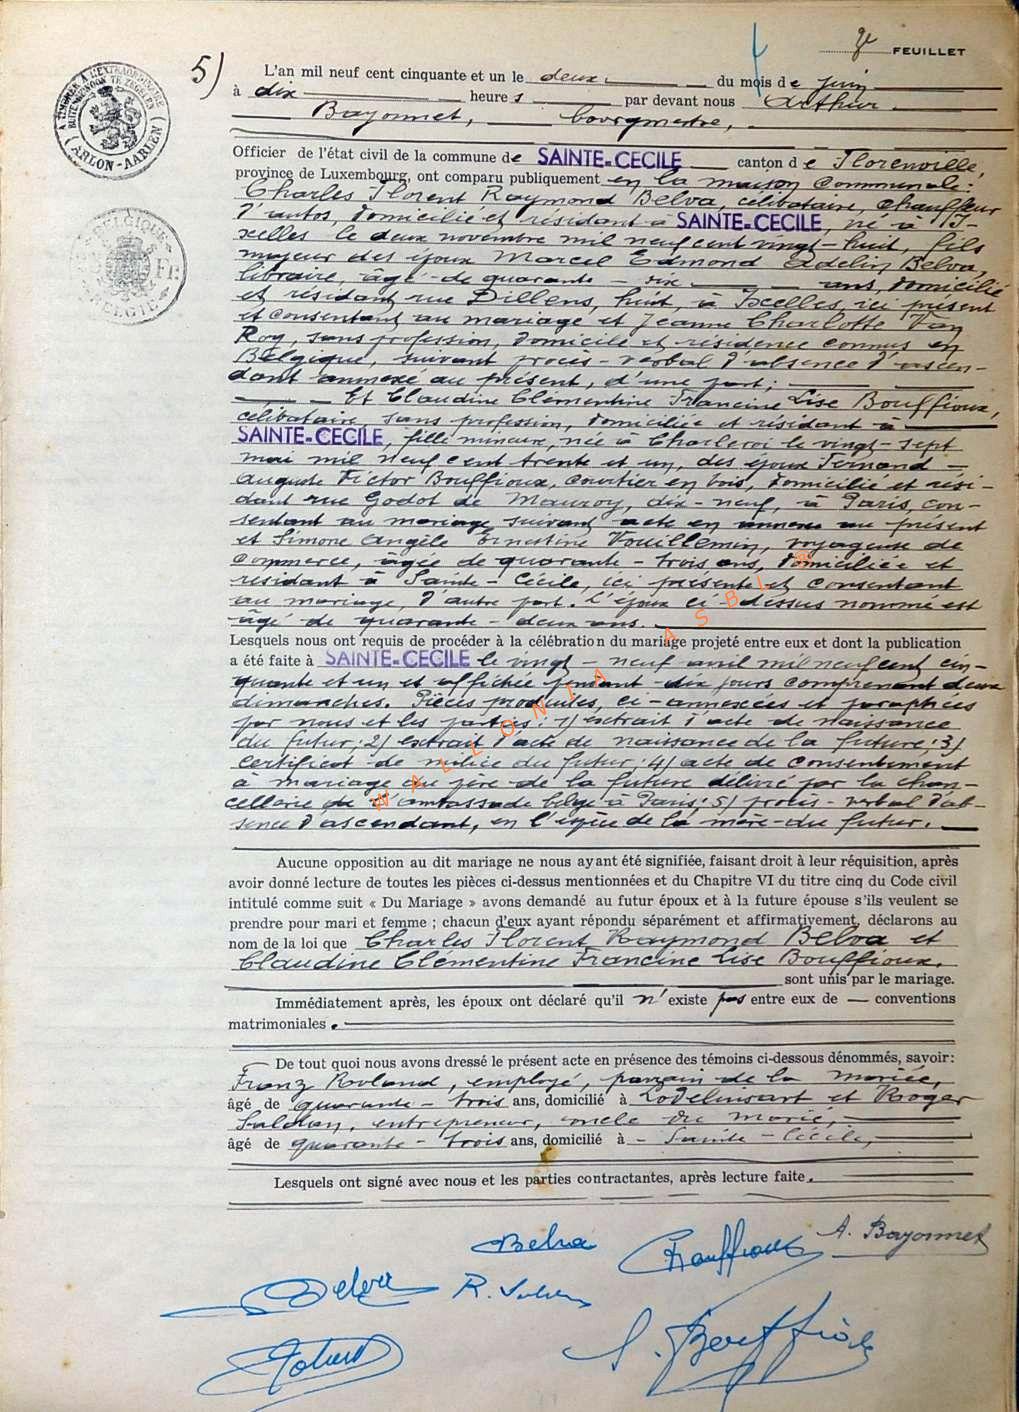 2e FEUILLET
5)
L'an mil neuf cent cinquante et un le deux du mois de juin
à dix heures par devant nous Arthur
Bayonnet, bourgmestre,
Officier de l'état civil de la commune de SAINTE-CECILE canton de Florenville,
province de Luxembourg, ont comparu publiquement en la maison communale:
Charles Florent Raymond Belva, célibataire, chauffeur
d'autos, domicilié et résidant à SAINTE-CECILE, né à I-
xelles le deux novembre mil neuf cent vingt-huit, fils
majeur des époux Marcel Edmond Adelin Belva,
libraire, âgé de quarante-dix ans, domicilié
et résidant rue Dillens, huit, à Ixelles, ici présent
et consentant au mariage et Jeanne Charlotte Van
Roy, sans profession, domicile et résidence connus en
Belgique, suivant procès-verbal d'absence d'ascen-
dant annexé au présent, d'une part;
Et Claudine Clémentine Francine Lise Bouffioux,
célibataire, sans profession, domiciliée et résidant à
SAINTE-CECILE, fille mineure, née à Charleroi le vingt-sept
mai mil neuf cent trente et un, des époux Fernand
Auguste Victor Bouffioux, courtier en bois, domicilié et rési-
dant rue Godot de Mauroy, dix-neuf, à Paris, con-
sentant au mariage suivant acte en annexe au présent
et Simone Angèle Ernestine Vouillemin, voyageuse de
commerce, âgée de quarante-trois ans, domiciliée et
résidant à Sainte-Cécile, ici présente et consentant
au mariage, d'autre part. L'époux ci-dessus nommé est
âgé de quarante-deux ans.
Lesquels nous ont requis de procéder à la célébration du mariage projeté entre eux et dont la publication
a été faite à SAINTE-CECILE le vingt-neuf avril mil neuf cent cin-
quante et un et affichée pendant dix jours comprenant deux
dimanches. Pièces produites, ci-annexées et paraphées
par nous et les parties: 1) extrait d'acte de naissance
du futur; 2) extrait d'acte de naissance de la future; 3)
certificat de milice du futur; 4) acte de consentement
à mariage du père de la future délivré par la chan-
cellerie de l'ambassade belge à Paris; 5) procès-verbal d'ab-
sence d'ascendant, en l'espèce de la mère du futur.
Aucune opposition au dit mariage ne nous ayant été signifiée, faisant droit à leur réquisition, après
avoir donné lecture de toutes les pièces ci-dessus mentionnées et du Chapitre VI du titre cinq du Code civil
intitulé comme suit « Du Mariage » avons demandé au futur époux et à la future épouse s'ils veulent se
prendre pour mari et femme ; chacun d'eux ayant répondu séparément et affirmativement, déclarons au
nom de la loi que Charles Florent Raymond Belva et
Claudine Clémentine Francine Lise Bouffioux.
sont unis par le mariage.
Immédiatement après, les époux ont déclaré qu'il n'existe pas entre eux de conventions
matrimoniales.
De tout quoi nous avons dressé le présent acte en présence des témoins ci-dessous dénommés, savoir:
Franz Roland, employé, parrain de la mariée,
âgé de quarante-trois ans, domicilié à Lodelinsart et Roger
entrepreneur, oncle du marié,
âgé de quarante-trois ans, domicilié à Sainte-Cécile,
Lesquels ont signé avec nous et les parties contractantes, après lecture faite.
Belva Bouffioux A. Bayonnet
Belva R.
S. Bouffioux
TIMBRE A L'EXTRAORDINAIRE
BUITENGEWOON TE ZEGELEN
(ARLON-AARLEN)
BELGIQUE
FR
BELGIË
WALLONIA ASBL